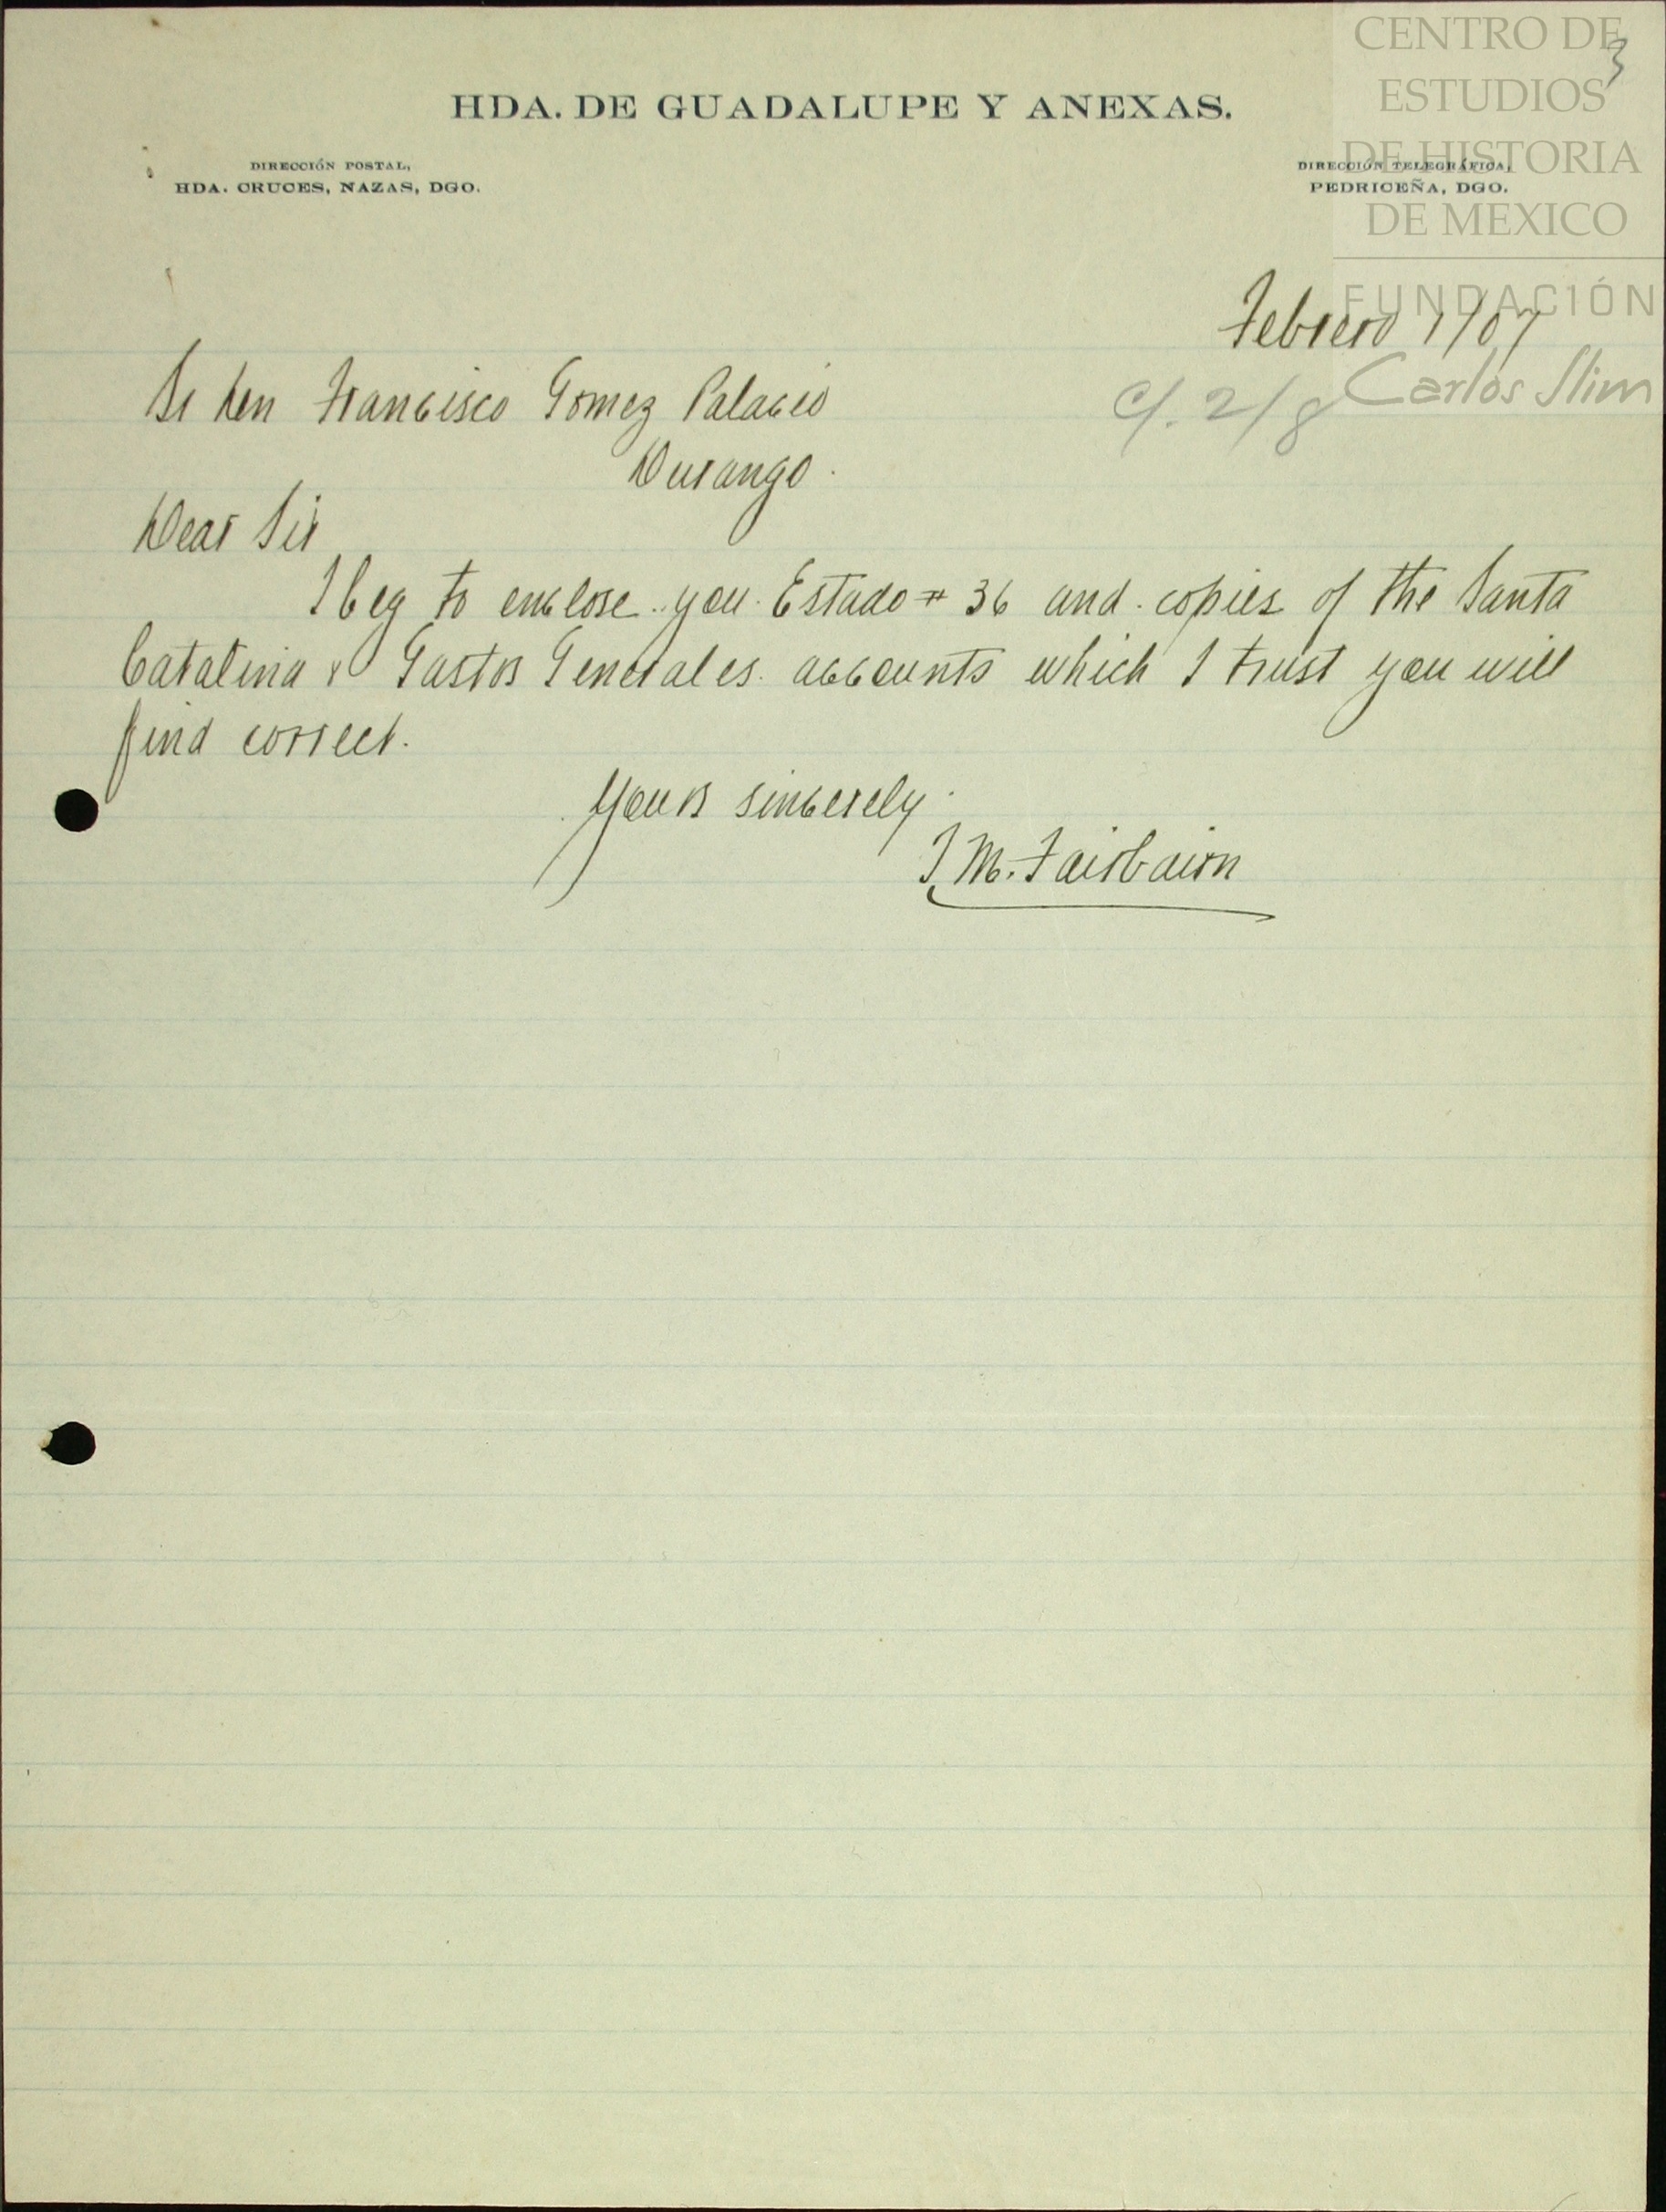 CENTRO DE
ESTUDIOS
DE HISTORIA
DE MEXICO
FUNDACIÓN
Carlos Slim
3
HDA. DE GUADALUPE Y ANEXAS.
DIRECCIÓN POSTAL,
HDA. CRUCES, NAZAS, DGO.
DIRECCIÓN TELEGRÁFICA,
PEDRICEÑA, DGO.
Febrero 7/07
c/. 2/8
Sr Don Francisco Gomez Palacio
Durango.
Dear Sir
I beg to enclose you Estado # 36 and copies of the Santa
Catalina & Gastos Generales accounts which I trust you will
find correct.
Yours sincerely
J M. Fairbairn